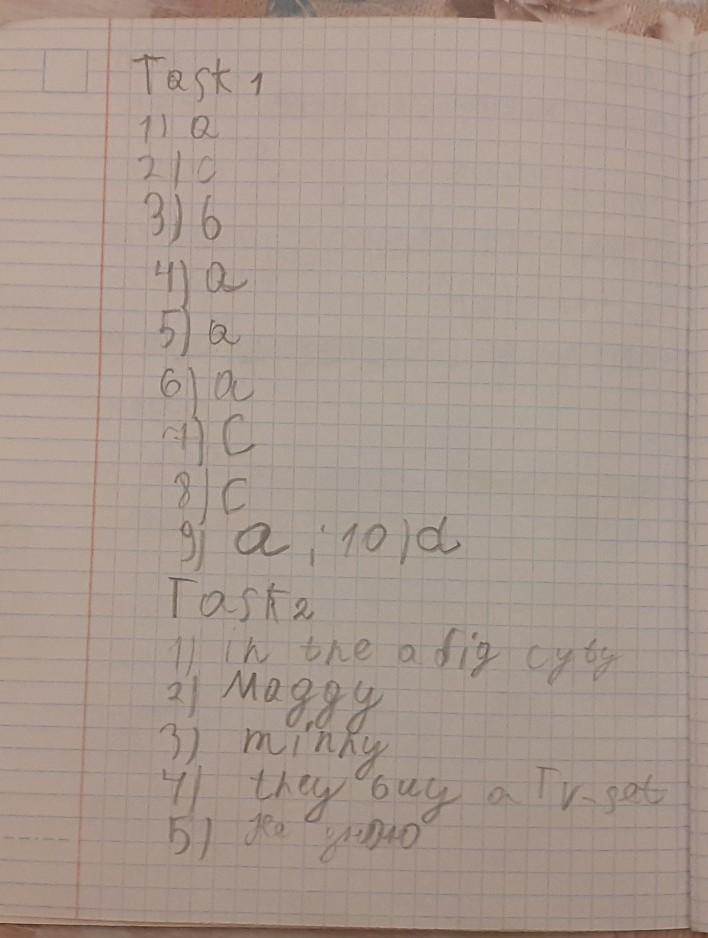 Task 1
1) a
2) c
3) b
4) a
5) a
6) a
7) C
8) C
9) a ; 10) d
Task 2
1) in the a big cyty
2) Maggy
3) minny
4) they buy a Tv-set
5) не знаю